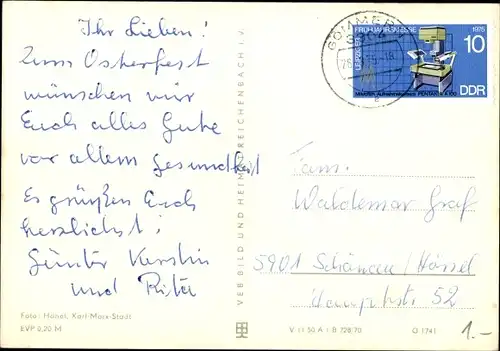 Ihr Lieben!
Zum Osterfest
wünschen wir
Euch alles Gute
vor allem Gesundheit
Es grüßen Euch
herzlichst!
Günter Kerstin
und Rita
Foto: Hänel, Karl-Marx-Stadt
EVP 0,20 M
VEB BILD UND HEIMAT REICHENBACH I. V.
FRÜHJAHRSMESSE
1975
10
DDR
Fam.
Waldemar Graf
5901
Hauptstr. 52
V 11 50 A 1 B 728/70 O 1741
1.-